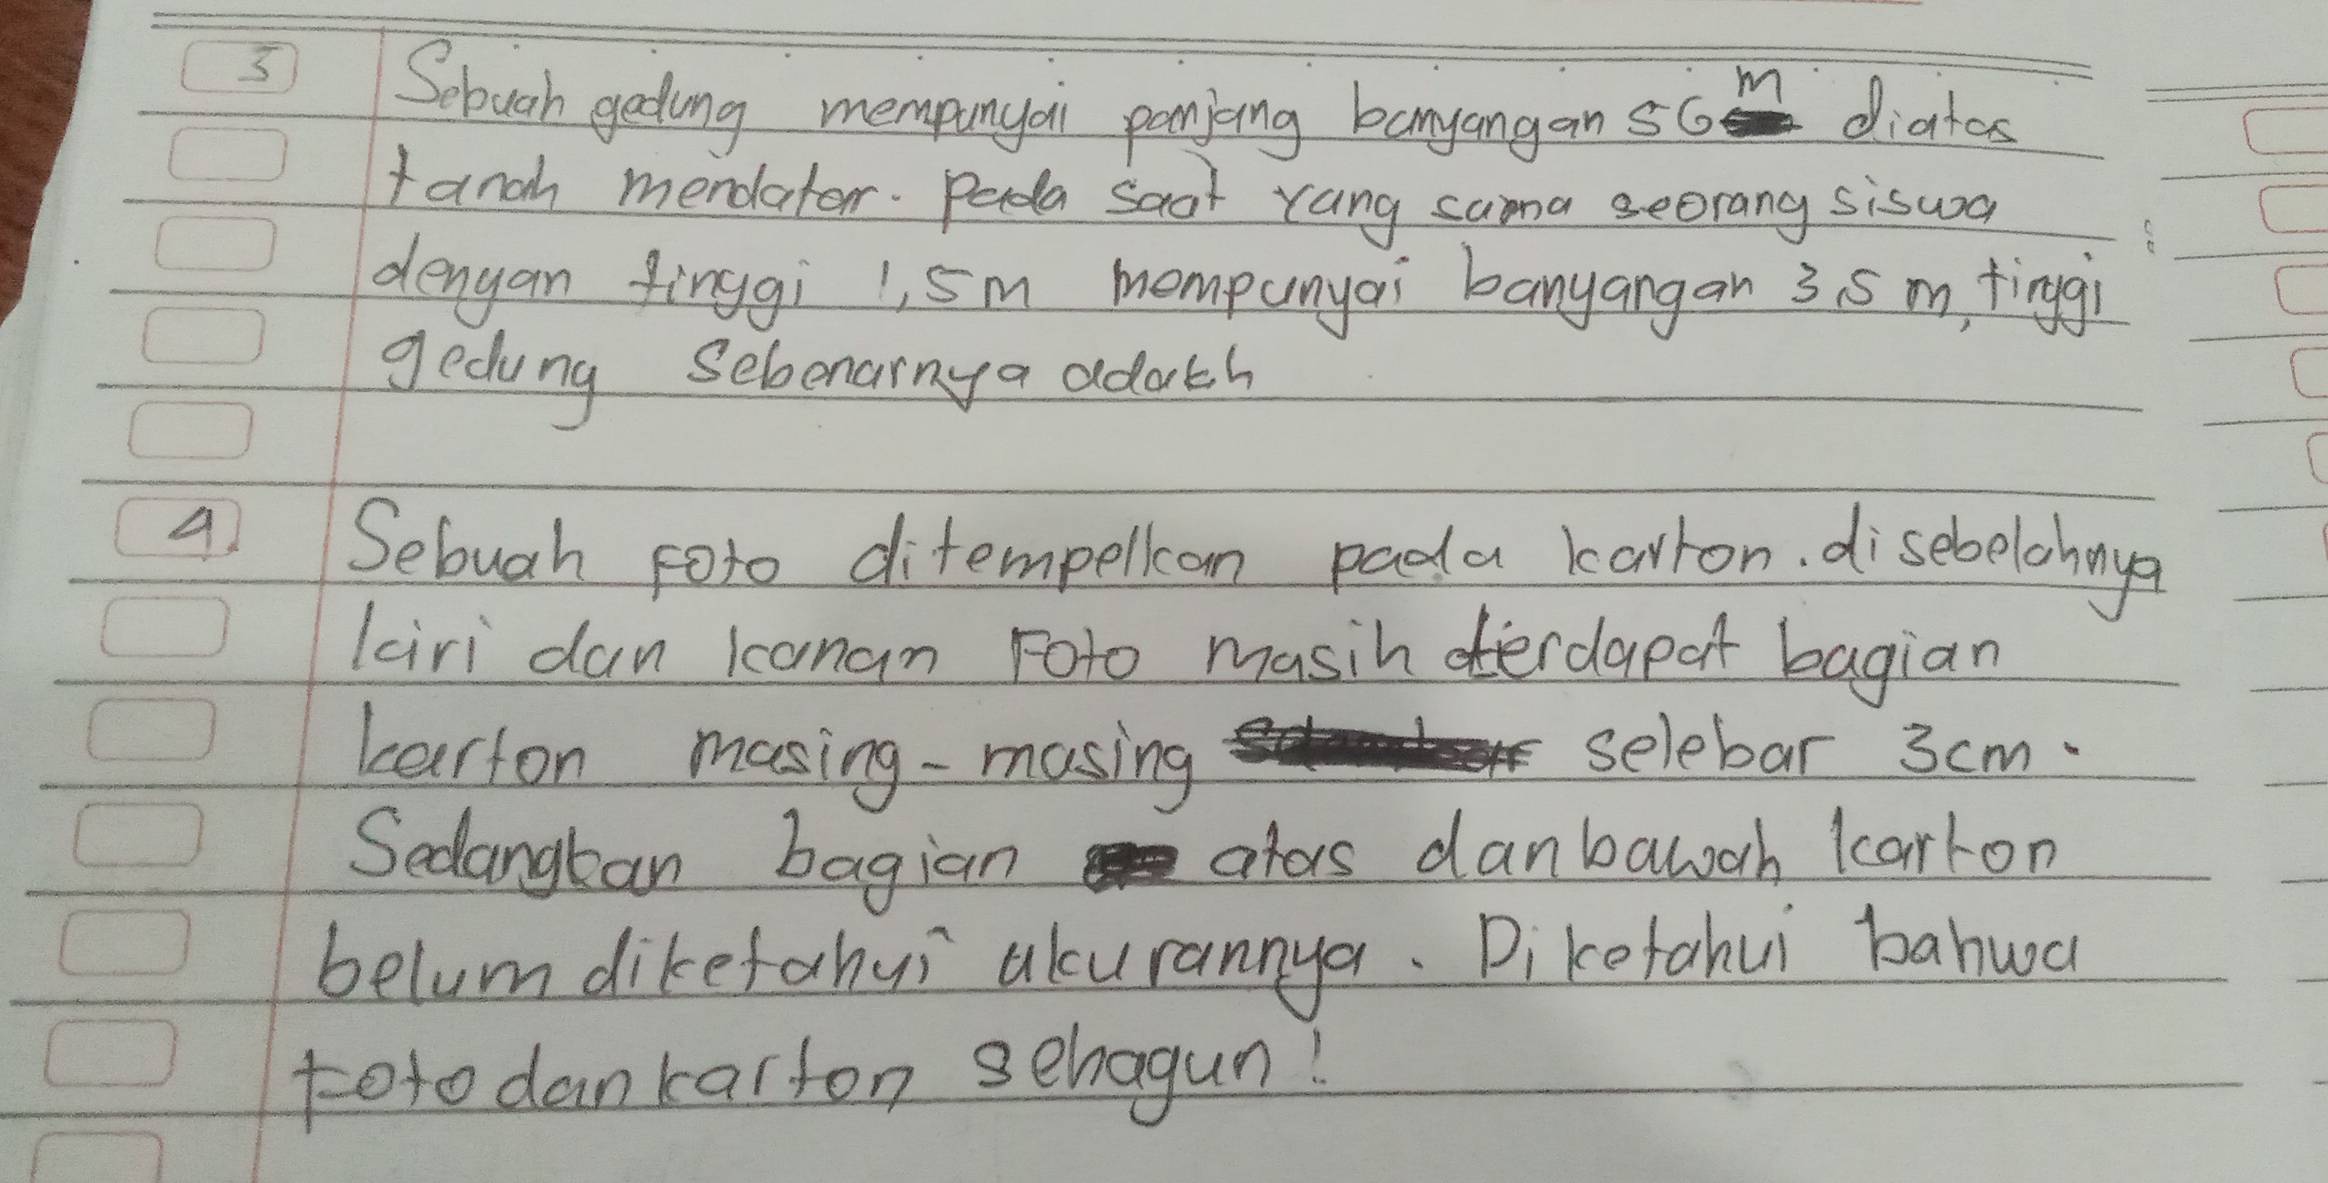 3 Sebuah gedung mempunyai panjang banyangan 56 m diatas
tanah mendatar. Pada saat yang sama seorang siswa
dengan tinggi 1,5 m mempunyai banyangan 3,5 m, tinggi
gedung sebenarnya adalah
4. Sebuah Foto ditempelkan pada karton. disebelahnya
kiri dan kanan Foto masih terdapat bagian
karton masing-masing selebar 3cm.
Sedangkan bagian atas dan bawah karton
belum diketahui ukurannya. Diketahui bahwa
Foto dan karton sebagun!